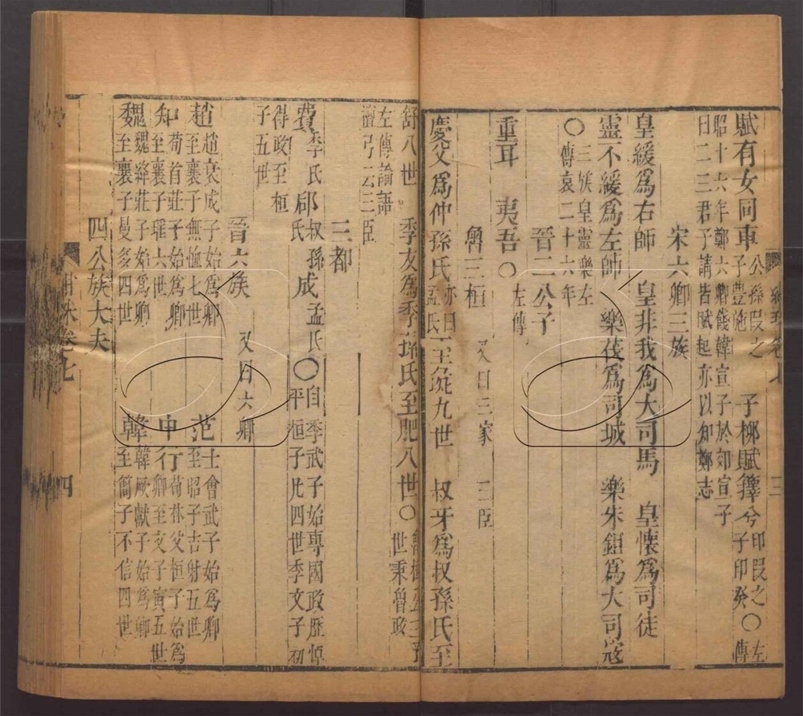 賦有女同車公孫段之子豐施 子柳賦蘀兮印段之子印癸○左傳
昭十六年鄭六卿餞韓宣子於郊宣子
曰二三君子請皆賦起亦以知鄭志
宋六卿三族
皇緩為右師 皇非我為大司馬 皇懷為司徒
靈不緩為左師 樂茷為司城 樂朱鉏為大司寇
○三族皇靈樂左
傳哀二十六年
晉二公子
重耳 夷吾○左傳
魯三桓又曰三家 三臣
慶父為仲孫氏亦曰孟氏至彘九世 叔牙為叔孫氏至
舒八世 季友為季孫氏至肥八世○
世秉魯政
左傳論語
檀弓云三臣
三都
費季氏郈叔孫氏成孟氏○自季武子始專國政歷悼平桓子凡四世季文子初
得政至桓
子五世
晉六族又曰六卿
趙趙衰成子始為卿至襄子無恤七世 范士會武子始為卿至昭子吉射五世
知荀首莊子始為卿至襄子瑤六世 中行荀林父桓子始為卿至文子寅五世
魏魏絳莊子始為卿至襄子曼多四世 韓韓厥獻子始為卿至簡子不信四世
四公族大夫
卷七
三
四